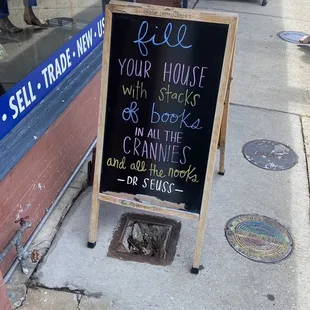 SELL · TRADE · NEW ·
fill
YOUR HOUSE
with STACKS
of books
IN ALL THE
CRANNIES
and all the nooks
- DR SEUSS -